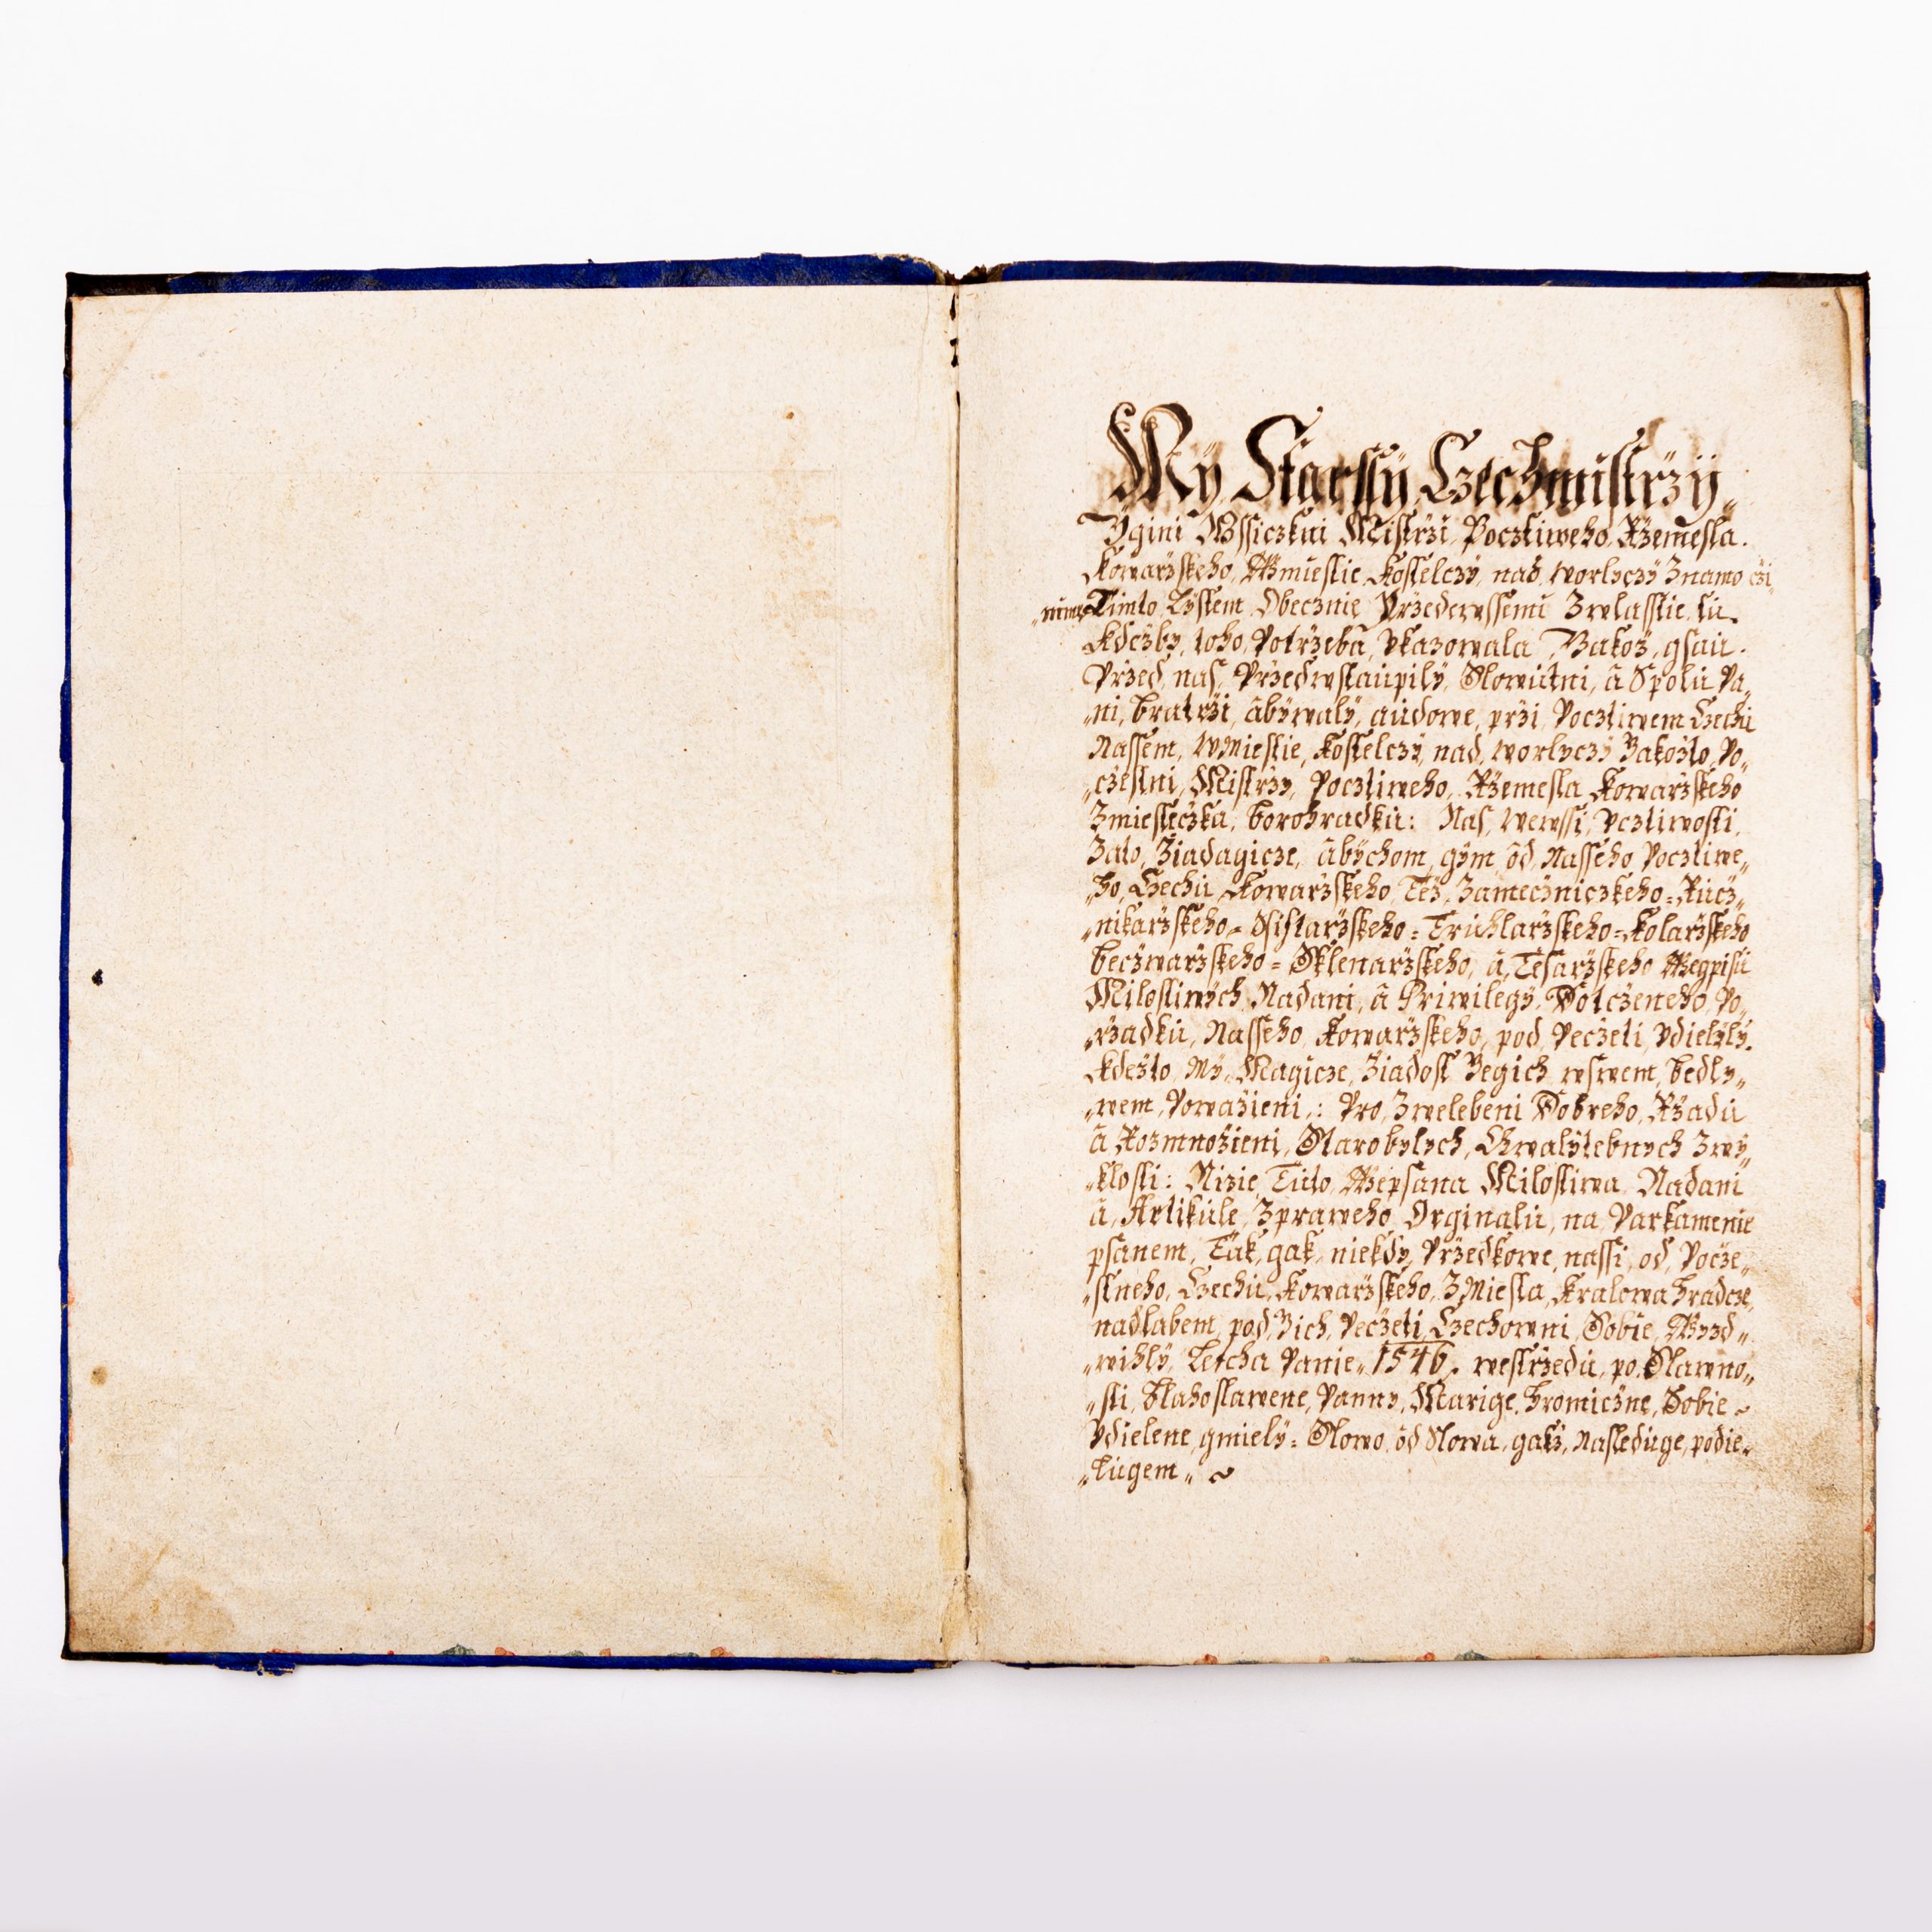 Mÿ Starssÿ Czechmistrzÿ„
Ygini Wssiczkni Mistrzi Pocztiweho Rzemesla.
Kowarzskeho, Wmiestie Kostelczÿ, nad, worlyczÿ Znamo czi„
„nime Timto Lÿstem Obecznie Przedewssemi Zwlasstie, tu.
Kdežby, toho, Potrzeba, Vkazowala, Yakož, gsau.
Przed, nas, Przedwstaupilÿ, Slowutni, a Spolu Pa„
„ni, bratrzi, abÿwalÿ, audowe, przi, Pocztiwem Czechu
Nassem, Wmiestie, Kostelczÿ, nad, worlyczÿ Yakožto, Po„
„czestni, Mistrzy, Pocztiweho, Rzemesla Kowarzskeho
Zmiesteczka, borohradku: Nas, wewssi, Vcztiwosti,
Zato, Žiadagicze, abÿchom, gÿm, od, Nasseho Pocztiwe„
„ho, Czechu, Kowarzskeho, Tež, Zamecžniczkeho = Rucž„
„nikarzskeho = Ssistarzskeho = Truhlarzskeho = Kolarzskeho
becžwarzskeho = Sklenarzskeho, a, Tesarzskeho Wegpisu
Milostiwÿch, Nadani, a Priwilegÿ, Dotcženeho, Po„
„rzadku, Nasseho, Kowarzskeho, pod, Pecžeti, Vdielÿlÿ.
Kdežto, Mÿ, Magicze, Žiadost Yegich, wswem, bedly„
„wem, Powaženi,: Pro, Zwelebeni Dobreho, Rzadu
a Rozmnoženi, Starobylych, Chwalÿtebnych Zwÿ„
„klosti: Nizie, Tuto, Wepsana Milostiwa, Nadani
a, Artikule, Zpraweho Orginalu, na, Parkamenie
psanem, Tak, gak, niekdy, Przedkowe, nassi, od, Pocže„
„stneho, Czechu, Kowarzskeho, Z Miesta, Kralowa hradcze,
nadlabem, pod, Yich, Pecžeti, Czechowni, Sobie, Wyzd„
„wihlÿ, Letcha Panie„ 1546. westrzedu, po, Slawno„
„sti, Blahoslawene, Panny, Marige, hromicžne, Sobie ~
Vdielene, gmielÿ = Slowo, od Slowa, gakž, Nasleduge, podie„
„kugem„ ~